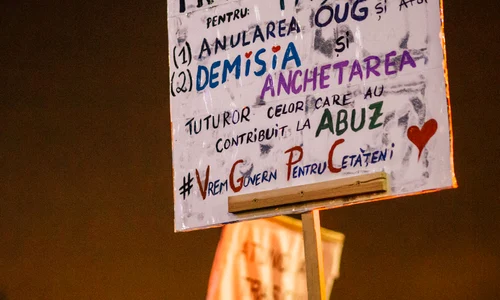 PENTRU:
(1) ANULAREA OUG ȘI
(2) DEMISIA ȘI
ANCHETAREA
TUTUROR CELOR CARE AU
CONTRIBUIT LA ABUZ
#VREM GUVERN PENTRU CETĂȚENI